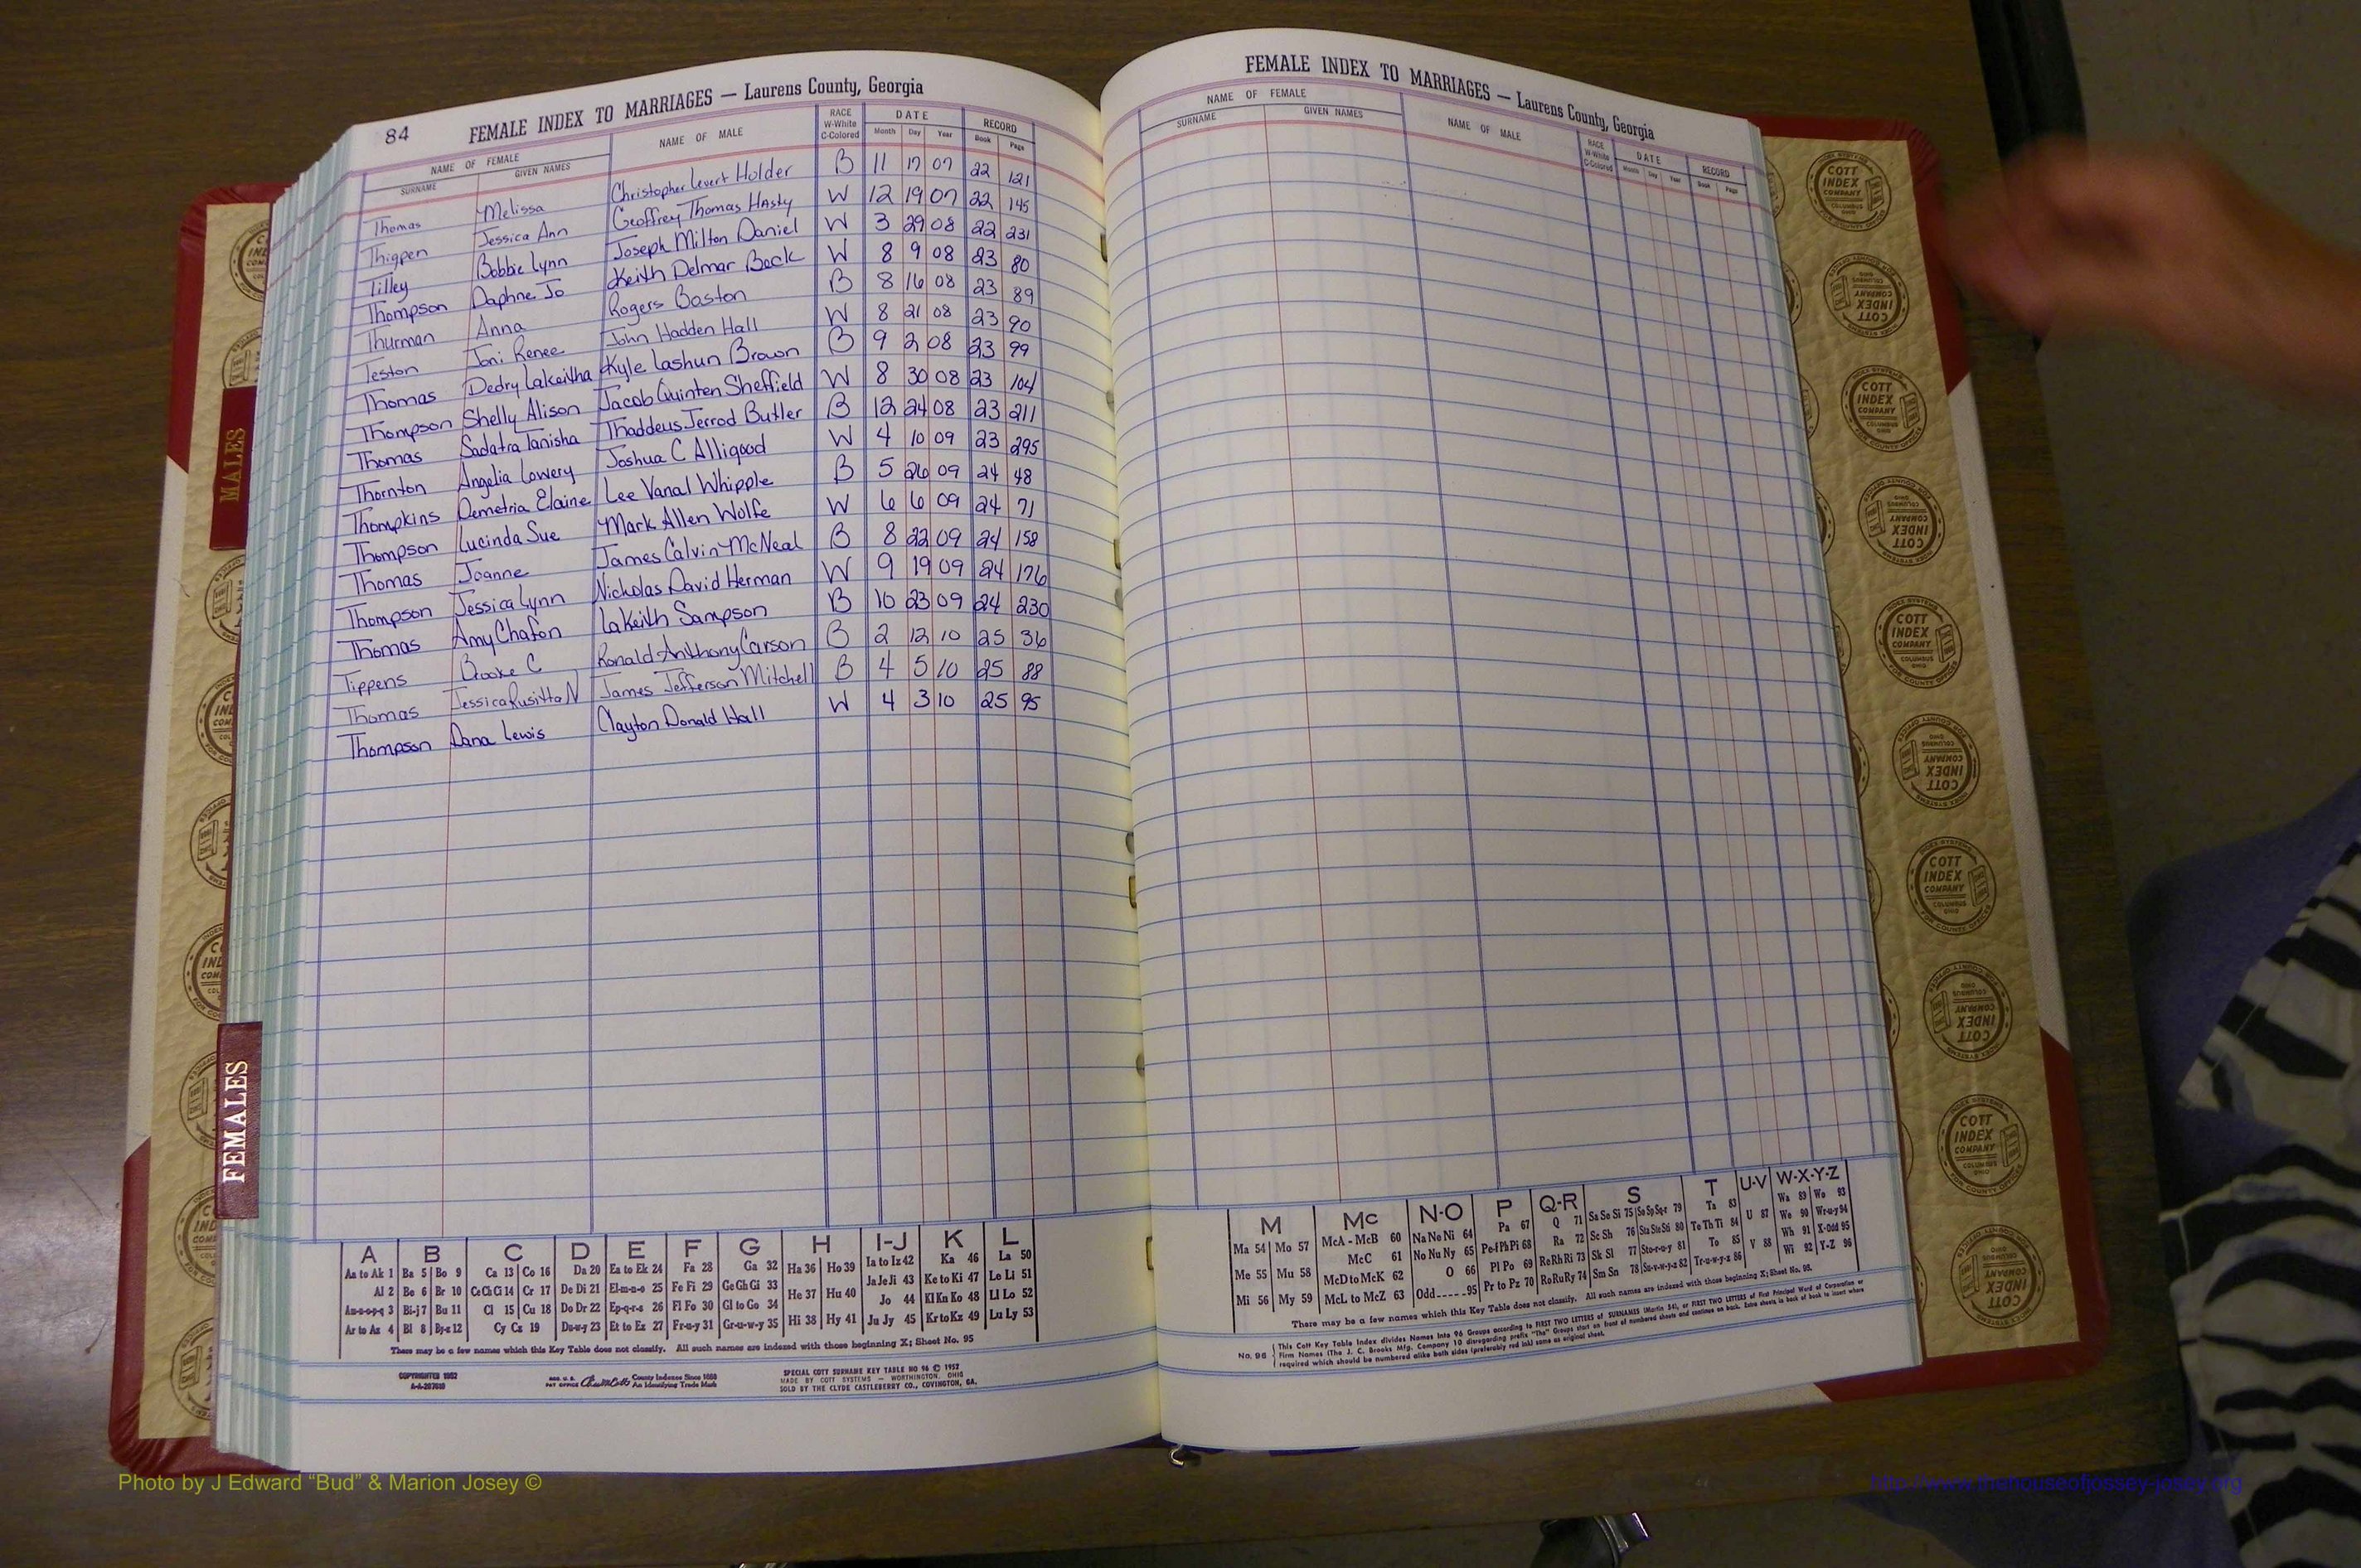 84 FEMALE INDEX TO MARRIAGES — Laurens County, Georgia
NAME OF FEMALE NAME OF MALE RACE W-White C-Colored DATE RECORD
SURNAME GIVEN NAMES Month Day Year Book Page
Thomas Melissa Christopher Levert Holder B 11 17 07 22 121
Thigpen Jessica Ann Geoffrey Thomas Hasty W 12 19 07 22 145
Tilley Bobbie Lynn Joseph Milton Daniel W 3 29 08 22 231
Thompson Daphne Jo Keith Delmar Beck W 8 9 08 23 80
Thurman Anna Rogers Baston B 8 16 08 23 89
Teston Joni Renee John Hadden Hall W 8 21 08 23 90
Thomas Dedry Lakeitha Kyle Lashun Brown B 9 2 08 23 99
Thompson Shelly Alison Jacob Quinten Sheffield W 8 30 08 23 104
Thomas Sadatra Tanisha Thaddeus Jerrod Butler B 12 24 08 23 211
Thornton Angelia Lowery Joshua C Alligood W 4 10 09 23 295
Thompkins Demetria Elaine Lee Vanal Whipple B 5 26 09 24 48
Thompson Lucinda Sue Mark Allen Wolfe W 6 6 09 24 71
Thomas Joanne James Calvin McNeal B 8 22 09 24 158
Thompson Jessica Lynn Nicholas David Herman W 9 19 09 24 176
Thomas Amy Chafon LaKeith Sampson B 10 23 09 24 230
Tippens Brooke C Ronald Anthony Carson B 2 12 10 25 36
Thomas Jessica N James Jefferson Mitchell B 4 5 10 25 88
Thompson Dana Lewis Clayton Donald Hall W 4 3 10 25 95
A B C D E F G H I-J K L
Aa to Ak 1 Ba 5 Bo 9 Ca 13 Co 16 Da 20 Ea to Ek 24 Fa 28 Ga 32 Ha 36 Ho 39 Ia to Iz 42 Ka 46 La 50
Al 2 Be 6 Br 10 Ce Ch Ci 14 Cr 17 De Di 21 El-m-n-o 25 Fe Fi 29 Ge Gh Gi 33 He 37 Hu 40 Ja Je Ji 43 Ke to Ki 47 Le Li 51
Am-n-o-p-q 3 Bi-j 7 Bu 11 Cl 15 Cu 18 Do Dr 22 Ep-q-r-s 26 Fl Fo 30 Gl to Go 34 Jo 44 Kl Kn Ko 48 Ll Lo 52
Ar to Az 4 Bl 8 By-z 12 Cy Cz 19 Du-w-y 23 Et to Ez 27 Fr-u-y 31 Gr-u-w-y 35 Hi 38 Hy 41 Ju Jy 45 Kr to Kz 49 Lu Ly 53
There may be a few names which this Key Table does not classify. All such names are indexed with those beginning X; Sheet No. 95
COPYRIGHTED 1952
County Indexes Since 1888
An Identifying Trade Mark
SPECIAL COTT SURNAME KEY TABLE NO 96 © 1952
MADE BY COTT SYSTEMS — WORTHINGTON, OHIO
SOLD BY THE CLYDE CASTLEBERRY CO., COVINGTON, GA.
FEMALE INDEX TO MARRIAGES — Laurens County, Georgia
NAME OF FEMALE NAME OF MALE RACE W-White C-Colored DATE RECORD
SURNAME GIVEN NAMES Month Day Year Book Page
M Mc N-O P Q-R S T U-V W-X-Y-Z
Ma 54 Mo 57 McA - McB 60 Na Ne Ni 64 Pa 67 Q 71 Sa Se Si 75 So Sp Sq-r 79 Ta 83 U 87 Wa 89 Wo 93
Me 55 Mu 58 McC 61 No Nu Ny 65 Pe-f Ph Pi 68 Ra 72 Sc Sh 76 Sta Ste Sti 80 Te Th Ti 84 V 88 We 90 Wr-u-y 94
McD to McK 62 O 66 Pl Po 69 Re Rh Ri 73 Sk Sl 77 Sto-r-u-y 81 To 85 Wh 91 X-Odd 95
Mi 56 My 59 McL to McZ 63 Odd 95 Pr to Pz 70 Ro Ru Ry 74 Sm Sn 78 Su-v-w-y-z 82 Tr-u-w-y-z 86 Wi 92 Y-Z 96
There may be a few names which this Key Table does not classify. All such names are indexed with those beginning X; Sheet No. 95.
No. 96 This Cott Key Table Index divides Names into 96 Groups according to FIRST TWO LETTERS of SURNAMES (Martin 54), or FIRST TWO LETTERS of First Principal Word of Corporation or
Firm Names (The J. C. Brooks Mfg. Company 10 disregarding prefix "The" Groups start on front of numbered sheets and continue on back. Extra sheets in back of book to insert where
required which should be numbered alike both sides (preferably red ink) same as original sheet.
MALES
FEMALES
COTT INDEX COMPANY COLUMBUS OHIO
INDEX SYSTEMS FOR COUNTY OFFICES
Photo by J Edward “Bud” & Marion Josey ©
http://www.thehouseofjossey-josey.org